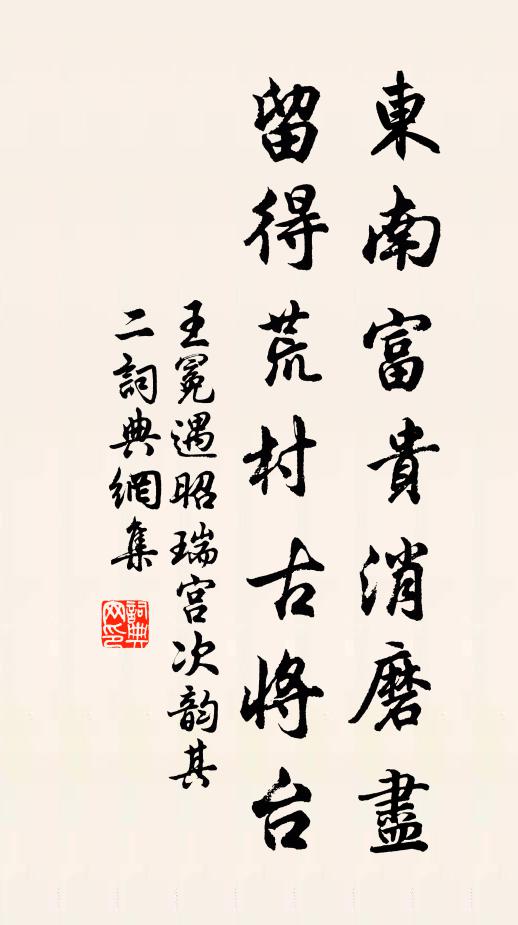 東南富貴消磨盡
留得荒村古將台
王冕遇昭瑞宫次韵其
二詞典網集
詞典
网印